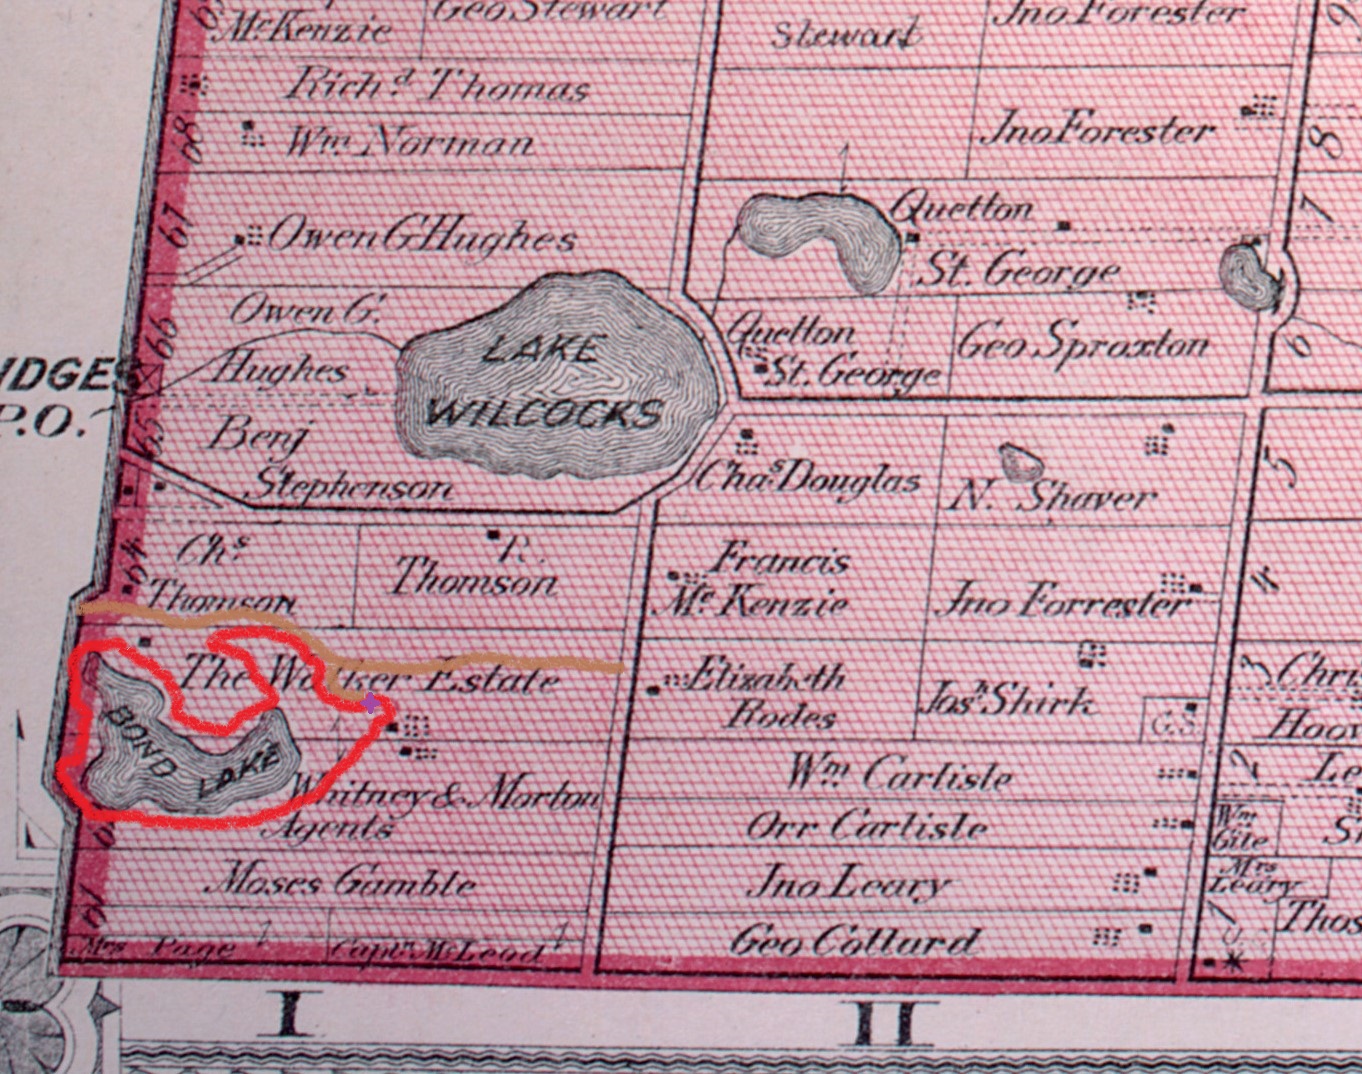 McKenzie
Geo Stewart
Stewart
Jno Forester
9
Richd Thomas
68
Wm Norman
Jno Forester
8
67
Owen G Hughes
Quetton
St. George
7
66
Owen G.
Hughes
LAKE
WILCOCKS
Quetton
St. George
Geo Sproxton
6
IDGES
P.O.
65
Benj
Stephenson
Chas Douglas
N. Shaver
5
64
Chs
Thomson
R.
Thomson
Francis
Mc Kenzie
Jno Forrester
4
The Walker Estate
Elizabeth
Rodes
Josh Shirk
G.S.
3
Chri
Hoov
BOND
LAKE
Whitney & Morton
Agents
Wm Carlisle
2
Le
Orr Carlisle
Wm
Gile
Moses Gamble
Jno Leary
Mrs
Leary
61
Mrs Page
Captn McLeod
Geo Collard
1
Thos
I
II